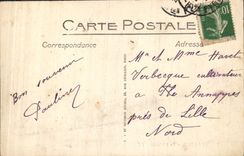 CARTE POSTALE
Correspondance
Adresse
Bon souvenir
Pauline
Mr et Mme Havet
Verbecque cultivateur
à Annappes
près de Lille
Nord
10